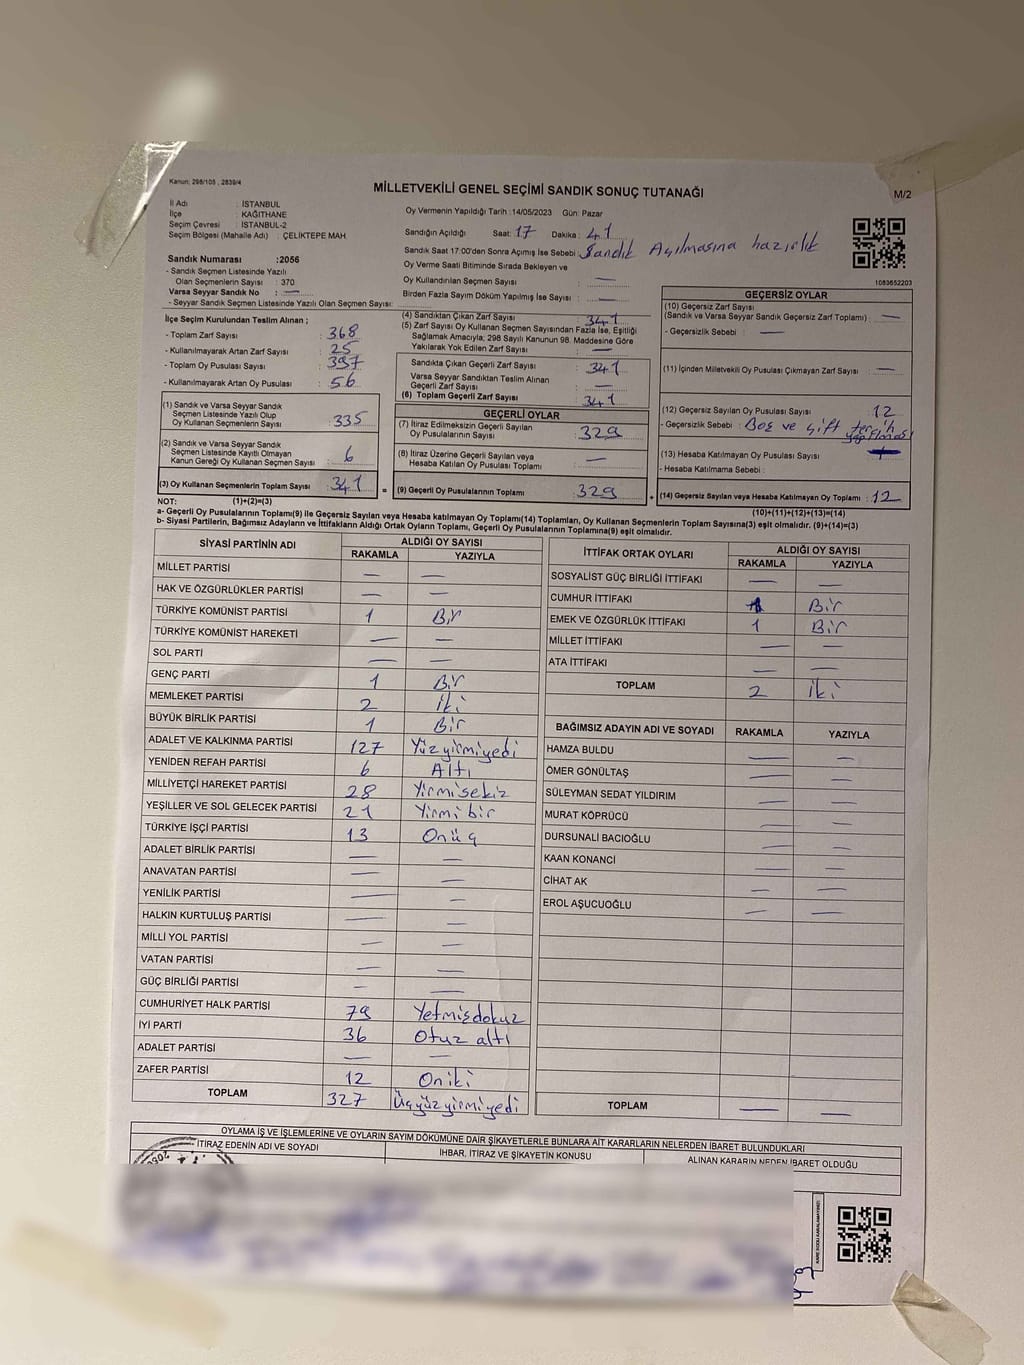 Kanun: 298/105 , 2839/4
MİLLETVEKİLİ GENEL SEÇİMİ SANDIK SONUÇ TUTANAĞI
M/2
İl Adı : İSTANBUL
İlçe : KAĞITHANE
Seçim Çevresi : İSTANBUL-2
Seçim Bölgesi (Mahalle Adı) : ÇELİKTEPE MAH.
Oy Vermenin Yapıldığı Tarih :14/05/2023 Gün: Pazar
Sandığın Açıldığı Saat: 17 Dakika : 41
Sandık Saat 17:00'den Sonra Açımış İse Sebebi : Sandık Açılmasına hazırlık
Oy Verme Saati Bitiminde Sırada Bekleyen ve
Oy Kullandırılan Seçmen Sayısı : —
Birden Fazla Sayım Döküm Yapılmış İse Sayısı : —
1083652203
Sandık Numarası :2056
- Sandık Seçmen Listesinde Yazılı
Olan Seçmenlerin Sayısı : 370
Varsa Seyyar Sandık No : —
- Seyyar Sandık Seçmen Listesinde Yazılı Olan Seçmen Sayısı:
İlçe Seçim Kurulundan Teslim Alınan ;
- Toplam Zarf Sayısı : 368
- Kullanılmayarak Artan Zarf Sayısı : 25
- Toplam Oy Pusulası Sayısı : 397
- Kullanılmayarak Artan Oy Pusulası : 56
(1) Sandık ve Varsa Seyyar Sandık
Seçmen Listesinde Yazılı Olup
Oy Kullanan Seçmenlerin Sayısı : 335
(2) Sandık ve Varsa Seyyar Sandık
Seçmen Listesinde Kayıtlı Olmayan
Kanun Gereği Oy Kullanan Seçmen Sayısı : 6
(3) Oy Kullanan Seçmenlerin Toplam Sayısı : 341
(4) Sandıktan Çıkan Zarf Sayısı : 341
(5) Zarf Sayısı Oy Kullanan Seçmen Sayısından Fazla İse, Eşitliği
Sağlamak Amacıyla; 298 Sayılı Kanunun 98. Maddesine Göre
Yakılarak Yok Edilen Zarf Sayısı : —
Sandıkta Çıkan Geçerli Zarf Sayısı : 341
Varsa Seyyar Sandıktan Teslim Alınan
Geçerli Zarf Sayısı : —
(6) Toplam Geçerli Zarf Sayısı : 341
GEÇERLİ OYLAR
(7) İtiraz Edilmeksizin Geçerli Sayılan
Oy Pusulalarının Sayısı : 329
(8) İtiraz Üzerine Geçerli Sayılan veya
Hesaba Katılan Oy Pusulası Toplamı : —
= (9) Geçerli Oy Pusulalarının Toplamı : 329
GEÇERSİZ OYLAR
(10) Geçersiz Zarf Sayısı
(Sandık ve Varsa Seyyar Sandık Geçersiz Zarf Toplamı) : —
- Geçersizlik Sebebi : —
(11) İçinden Milletvekili Oy Pusulası Çıkmayan Zarf Sayısı : —
(12) Geçersiz Sayılan Oy Pusulası Sayısı : 12
- Geçersizlik Sebebi : Boş ve çift tercih yapılması
(13) Hesaba Katılmayan Oy Pusulası Sayısı
- Hesaba Katılmama Sebebi :
+ (14) Geçersiz Sayılan veya Hesaba Katılmayan Oy Toplamı : 12
NOT: (1)+(2)=(3)
(10)+(11)+(12)+(13)=(14)
a- Geçerli Oy Pusulalarının Toplamı(9) ile Geçersiz Sayılan veya Hesaba katılmayan Oy Toplamı(14) Toplamları, Oy Kullanan Seçmenlerin Toplam Sayısına(3) eşit olmalıdır. (9)+(14)=(3)
b- Siyasi Partilerin, Bağımsız Adayların ve İttifakların Aldığı Ortak Oyların Toplamı, Geçerli Oy Pusulalarının Toplamına(9) eşit olmalıdır.
SİYASİ PARTİNİN ADI ALDIĞI OY SAYISI
RAKAMLA YAZIYLA
MİLLET PARTİSİ — —
HAK VE ÖZGÜRLÜKLER PARTİSİ — —
TÜRKİYE KOMÜNİST PARTİSİ 1 Bir
TÜRKİYE KOMÜNİST HAREKETİ — —
SOL PARTİ — —
GENÇ PARTİ 1 Bir
MEMLEKET PARTİSİ 2 İki
BÜYÜK BİRLİK PARTİSİ 1 Bir
ADALET VE KALKINMA PARTİSİ 127 Yüzyirmiyedi
YENİDEN REFAH PARTİSİ 6 Altı
MİLLİYETÇİ HAREKET PARTİSİ 28 Yirmisekiz
YEŞİLLER VE SOL GELECEK PARTİSİ 21 Yirmi bir
TÜRKİYE İŞÇİ PARTİSİ 13 Onüç
ADALET BİRLİK PARTİSİ — —
ANAVATAN PARTİSİ — —
YENİLİK PARTİSİ — —
HALKIN KURTULUŞ PARTİSİ — —
MİLLİ YOL PARTİSİ — —
VATAN PARTİSİ — —
GÜÇ BİRLİĞİ PARTİSİ — —
CUMHURİYET HALK PARTİSİ 79 Yetmişdokuz
İYİ PARTİ 36 Otuz altı
ADALET PARTİSİ — —
ZAFER PARTİSİ 12 Oniki
TOPLAM 327 Üçyüzyirmiyedi
İTTİFAK ORTAK OYLARI ALDIĞI OY SAYISI
RAKAMLA YAZIYLA
SOSYALİST GÜÇ BİRLİĞİ İTTİFAKI — —
CUMHUR İTTİFAKI 1 Bir
EMEK VE ÖZGÜRLÜK İTTİFAKI 1 Bir
MİLLET İTTİFAKI — —
ATA İTTİFAKI — —
TOPLAM 2 İki
BAĞIMSIZ ADAYIN ADI VE SOYADI RAKAMLA YAZIYLA
HAMZA BULDU — —
ÖMER GÖNÜLTAŞ — —
SÜLEYMAN SEDAT YILDIRIM — —
MURAT KÖPRÜCÜ — —
DURSUNALİ BACIOĞLU — —
KAAN KONANCİ — —
CİHAT AK — —
EROL AŞUCUOĞLU — —
TOPLAM — —
OYLAMA İŞ VE İŞLEMLERİNE VE OYLARIN SAYIM DÖKÜMÜNE DAİR ŞİKAYETLERLE BUNLARA AİT KARARLARIN NELERDEN İBARET BULUNDUKLARI
İTİRAZ EDENİN ADI VE SOYADI İHBAR, İTİRAZ VE ŞİKAYETİN KONUSU ALINAN KARARIN NEDEN İBARET OLDUĞU
KARE KODU KARALAMAYINIZ!